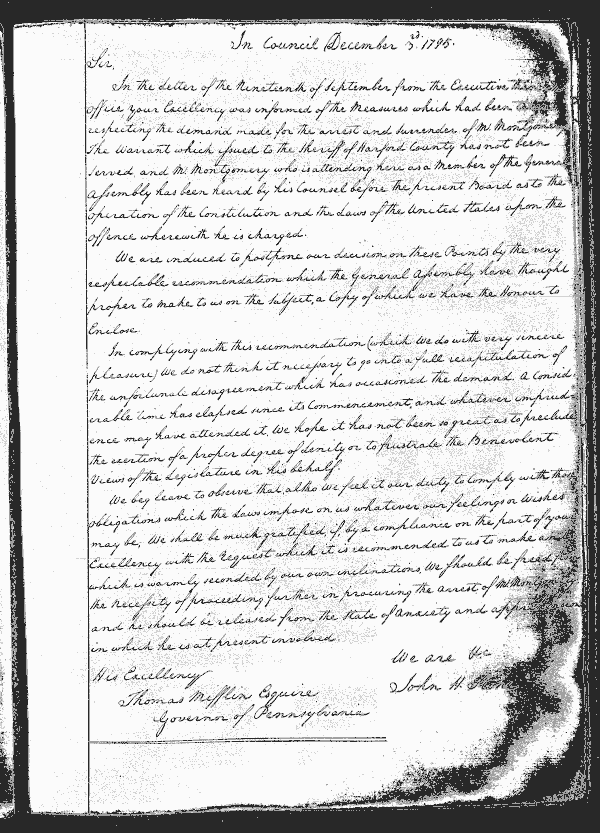 In Council December 3rd. 1795.
Sir,
In the Letter of the Nineteenth of September from the Executive
Office, your Excellency was informed of the Measures which had been
respecting the demand made for the arrest and surrender of Mr. Montgomery
The Warrant which issued to the Sheriff of Harford County has not been
Served and Mr. Montgomery who is attending here as a Member of the General
Assembly has been heard by his Counsel before the present Board as to the
operation of the Constitution and the Laws of the United States upon the
offence wherewith he is charged.
We are induced to postpone our decision on these Points by the very
respectable recommendation which the General Assembly have thought
proper to make to us on the Subject, a Copy of which we have the Honour to
Enclose.
In complying with this recommendation (which We do with very sincere
pleasure) We do not think it necessary to go into a full recapitulation of
the unfortunate disagreement which has occasioned the demand. A Consid-
erable time has elapsed since its Commencement, and whatever imprud-
ence may have attended it, We hope it has not been so great as to preclude
the exertion of a proper degree of Lenity or to frustrate the Benevolent
Views of the Legislature in his behalf.
We beg leave to observe that, altho We feel it our duty to Comply with those
obligations which the Laws impose on us whatever our feelings or Wishes
may be, We shall be much gratified, if by a compliance on the part of your
Excellency with the Request which it is recommended to us to make and
which is warmly seconded by our own inclinations, We should be freed from
the Necessity of proceeding further in procuring the Arrest of Mr. Montgomery
and he should be released from the State of Anxiety and
in which he is at present involved.
We are &c
His Excellency
John H. Stone
Thomas Mifflin Esquire
Governor of Pennsylvania